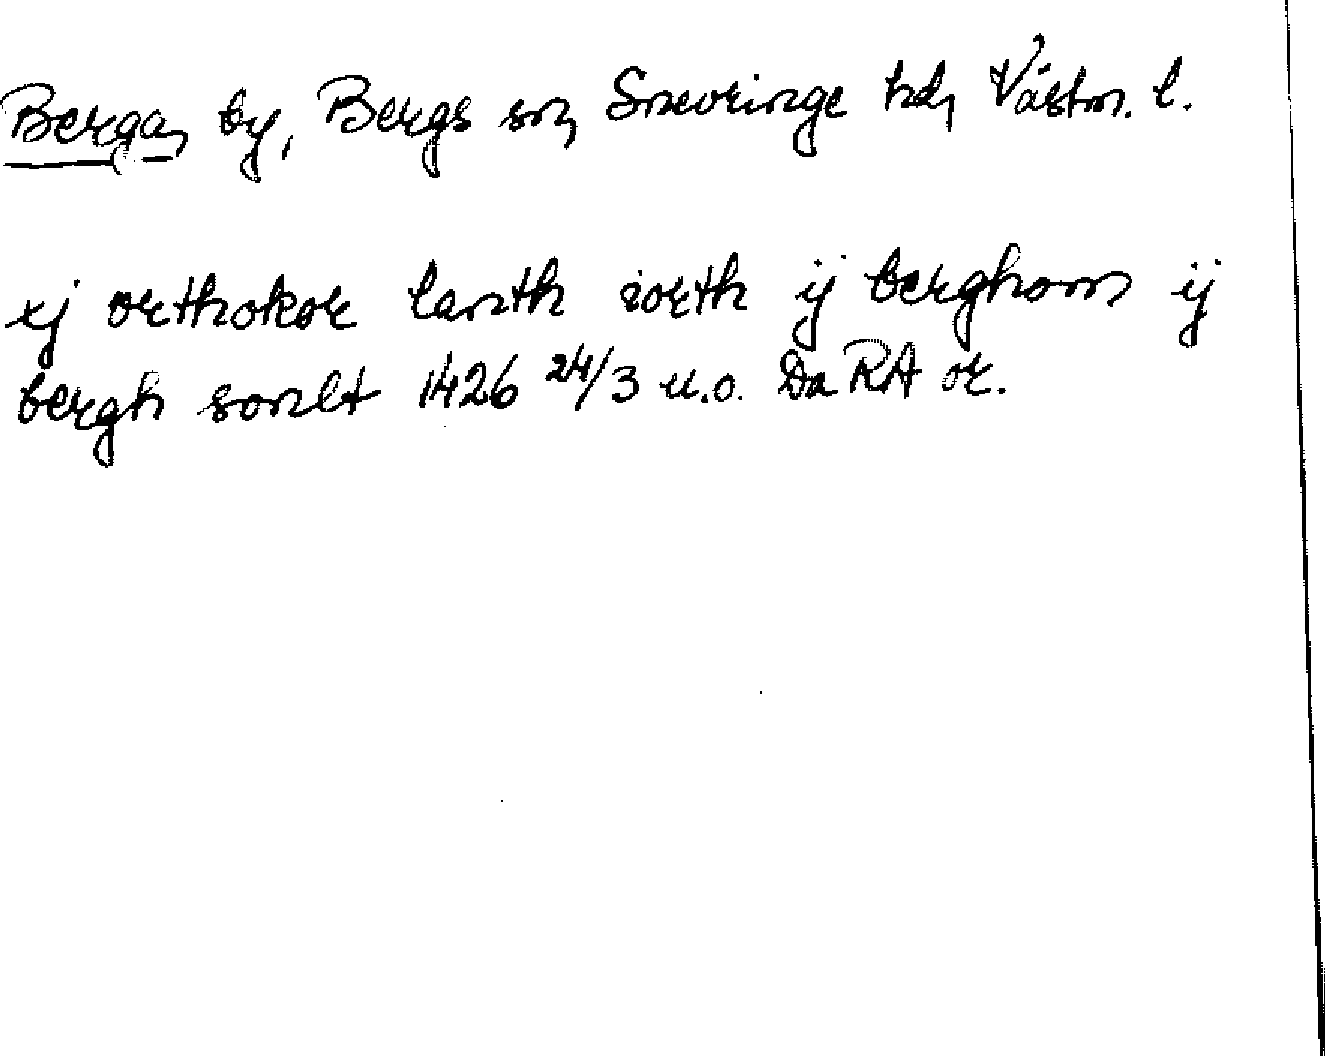 Berga, by, Bergs sn, Snevringe hd, Västm. l.
xj orthokor lanth iorth ij berghom ij
bergh sonlt 1426 24/3 u.o. Da RA or.